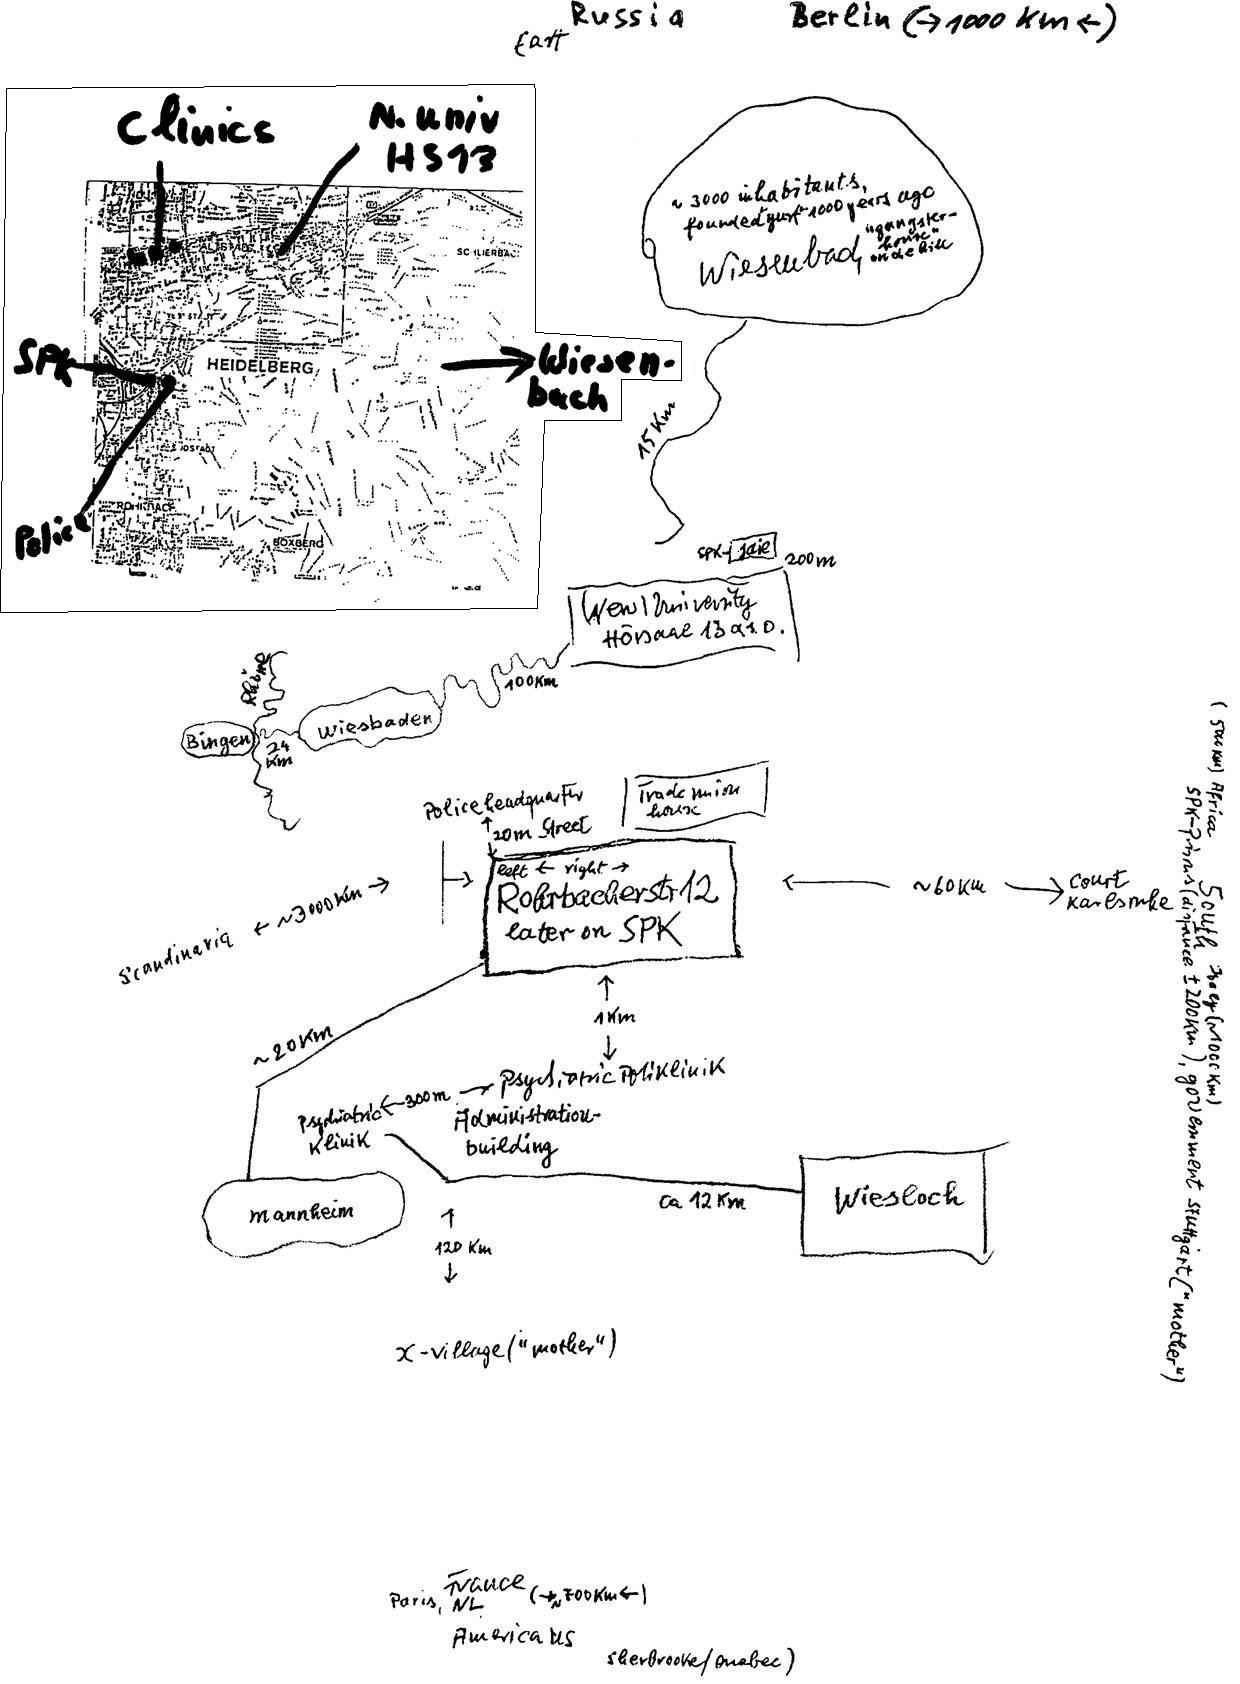 Russia
East
Berlin (→1000 Km←)
Clinics
N. univ
HS13
ALTSTADT
SCHLIERBAC
SPK
HEIDELBERG
Wiesen-
bach
Police
BOXBERG
~ 3000 inhabitants,
founded just 1000 years ago
Wiesenbach,
"gangster-
house"
on the hill
15 Km
SPK-
200m
(New) University
Hörsaal 13 a.s.o.
100 Km
Wiesbaden
Bingen
24
Km
Policeheadquarter
20m Street
Trade union
house
left ← right →
Rohrbacherstr 12
later on SPK
Scandinavia ← ~3000 Km →
← ~60 Km →
Court
Karlsruhe
~20 Km
1 Km
Psychiatric Poliklinik
← 300m →
Psychiatric
Klinik
Administration-
building
Mannheim
ca 12 Km
Wiesloch
120 Km
x-village ("mother")
Africa
South
SPK-Prisons (distance ± 200 Km), government Stuttgart ("mother")
Paris,
France
NL
(→~700 Km←)
America US
Sherbrooke/Quebec)